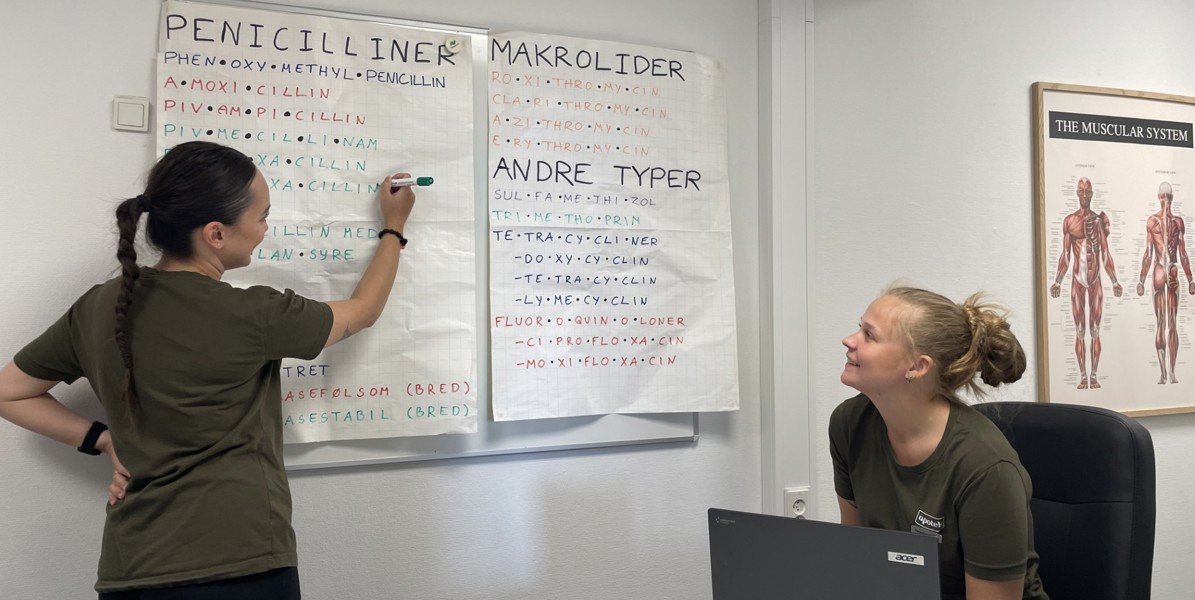 PENICILLINER
PHEN•OXY•METHYL•PENICILLIN
A•MOXI•CILLIN
PIV•AM•PI•CILLIN
PIV•ME•CIL•LI•NAM
XA•CILLIN
XA•CILLIN
ILLIN MED
LAN•SYRE
TRET
ASEFØLSOM (BRED)
ASESTABIL (BRED)
MAKROLIDER
RO•XI•THRO•MY•CIN
CLA•RI•THRO•MY•CIN
A•ZI•THRO•MY•CIN
E•RY•THRO•MY•CIN
ANDRE TYPER
SUL•FA•ME•THI•ZOL
TRI•ME•THO•PRIM
TE•TRA•CY•CLI•NER
-DO•XY•CY•CLIN
-TE•TRA•CY•CLIN
-LY•ME•CY•CLIN
FLUOR•O•QUIN•O•LONER
-CI•PRO•FLO•XA•CIN
-MO•XI•FLO•XA•CIN
THE MUSCULAR SYSTEM
acer